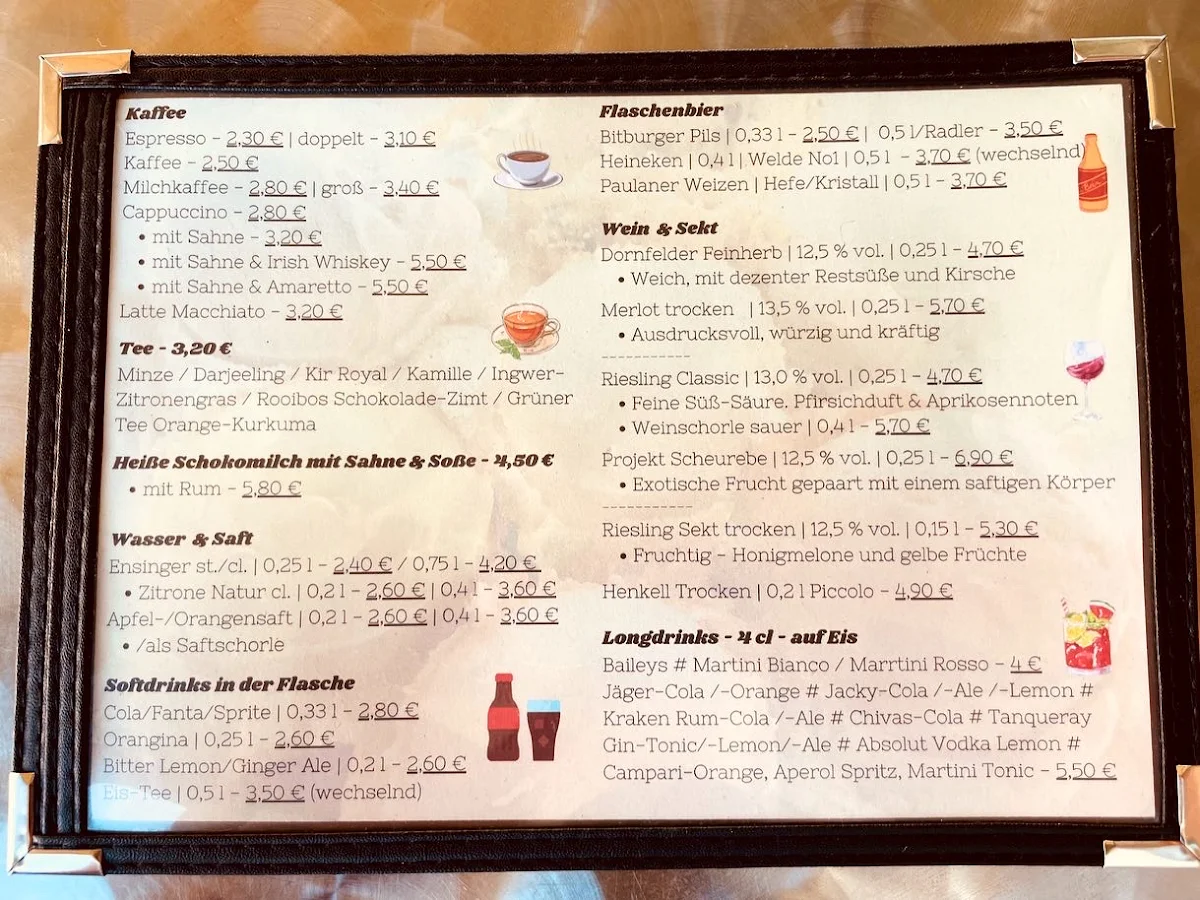 Kaffee
Espresso – 2,30 € | doppelt – 3,10 €
Kaffee – 2,50 €
Milchkaffee – 2,80 € | groß – 3,40 €
Cappuccino – 2,80 €
• mit Sahne – 3,20 €
• mit Sahne & Irish Whiskey – 5,50 €
• mit Sahne & Amaretto – 5,50 €
Latte Macchiato – 3,20 €
Tee – 3,20 €
Minze / Darjeeling / Kir Royal / Kamille / Ingwer-
Zitronengras / Rooibos Schokolade-Zimt / Grüner
Tee Orange-Kurkuma
Heiße Schokomilch mit Sahne & Soße – 4,50 €
• mit Rum – 5,80 €
Wasser & Saft
Ensinger st./cl. | 0,25 l – 2,40 € / 0,75 l – 4,20 €
• Zitrone Natur cl. | 0,2 l – 2,60 € | 0,4 l – 3,60 €
Apfel-/Orangensaft | 0,2 l – 2,60 € | 0,4 l – 3,60 €
• /als Saftschorle
Softdrinks in der Flasche
Cola/Fanta/Sprite | 0,33 l – 2,80 €
Orangina | 0,25 l – 2,60 €
Bitter Lemon/Ginger Ale | 0,2 l – 2,60 €
Eis-Tee | 0,5 l – 3,50 € (wechselnd)
Flaschenbier
Bitburger Pils | 0,33 l – 2,50 € | 0,5 l/Radler – 3,50 €
Heineken | 0,4 l | Welde No1 | 0,5 l – 3,70 € (wechselnd)
Paulaner Weizen | Hefe/Kristall | 0,5 l – 3,70 €
Wein & Sekt
Dornfelder Feinherb | 12,5 % vol. | 0,25 l – 4,70 €
• Weich, mit dezenter Restsüße und Kirsche
Merlot trocken | 13,5 % vol. | 0,25 l – 5,70 €
• Ausdrucksvoll, würzig und kräftig
-----------
Riesling Classic | 13,0 % vol. | 0,25 l – 4,70 €
• Feine Süß-Säure. Pfirsichduft & Aprikosennoten
• Weinschorle sauer | 0,4 l – 5,70 €
Projekt Scheurebe | 12,5 % vol. | 0,25 l – 6,90 €
• Exotische Frucht gepaart mit einem saftigen Körper
-----------
Riesling Sekt trocken | 12,5 % vol. | 0,15 l – 5,30 €
• Fruchtig – Honigmelone und gelbe Früchte
Henkell Trocken | 0,2 l Piccolo – 4,90 €
Longdrinks – 4 cl – auf Eis
Baileys # Martini Bianco / Marrtini Rosso – 4 €
Jäger-Cola /-Orange # Jacky-Cola /-Ale /-Lemon #
Kraken Rum-Cola /-Ale # Chivas-Cola # Tanqueray
Gin-Tonic/-Lemon/-Ale # Absolut Vodka Lemon #
Campari-Orange, Aperol Spritz, Martini Tonic – 5,50 €